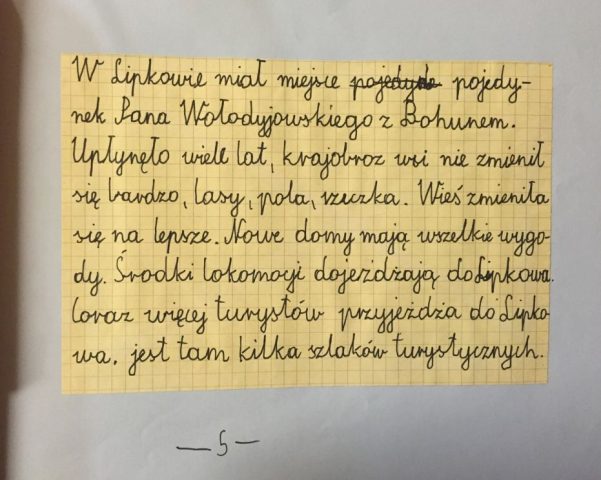 W Lipkowie miał miejsce pojedyne pojedy-
nek Pana Wołodyjowskiego z Bohunem.
Upłynęło wiele lat, krajobraz wsi nie zmienił
się bardzo, lasy, pola, rzeczka. Wieś zmieniła
się na lepsze. Nowe domy mają wszelkie wygo-
dy. Środki lokomocji dojeżdżają do Lipkowa.
Coraz więcej turystów przyjeżdża do Lipko
wa. jest tam kilka szlaków turystycznych.
— 5 —